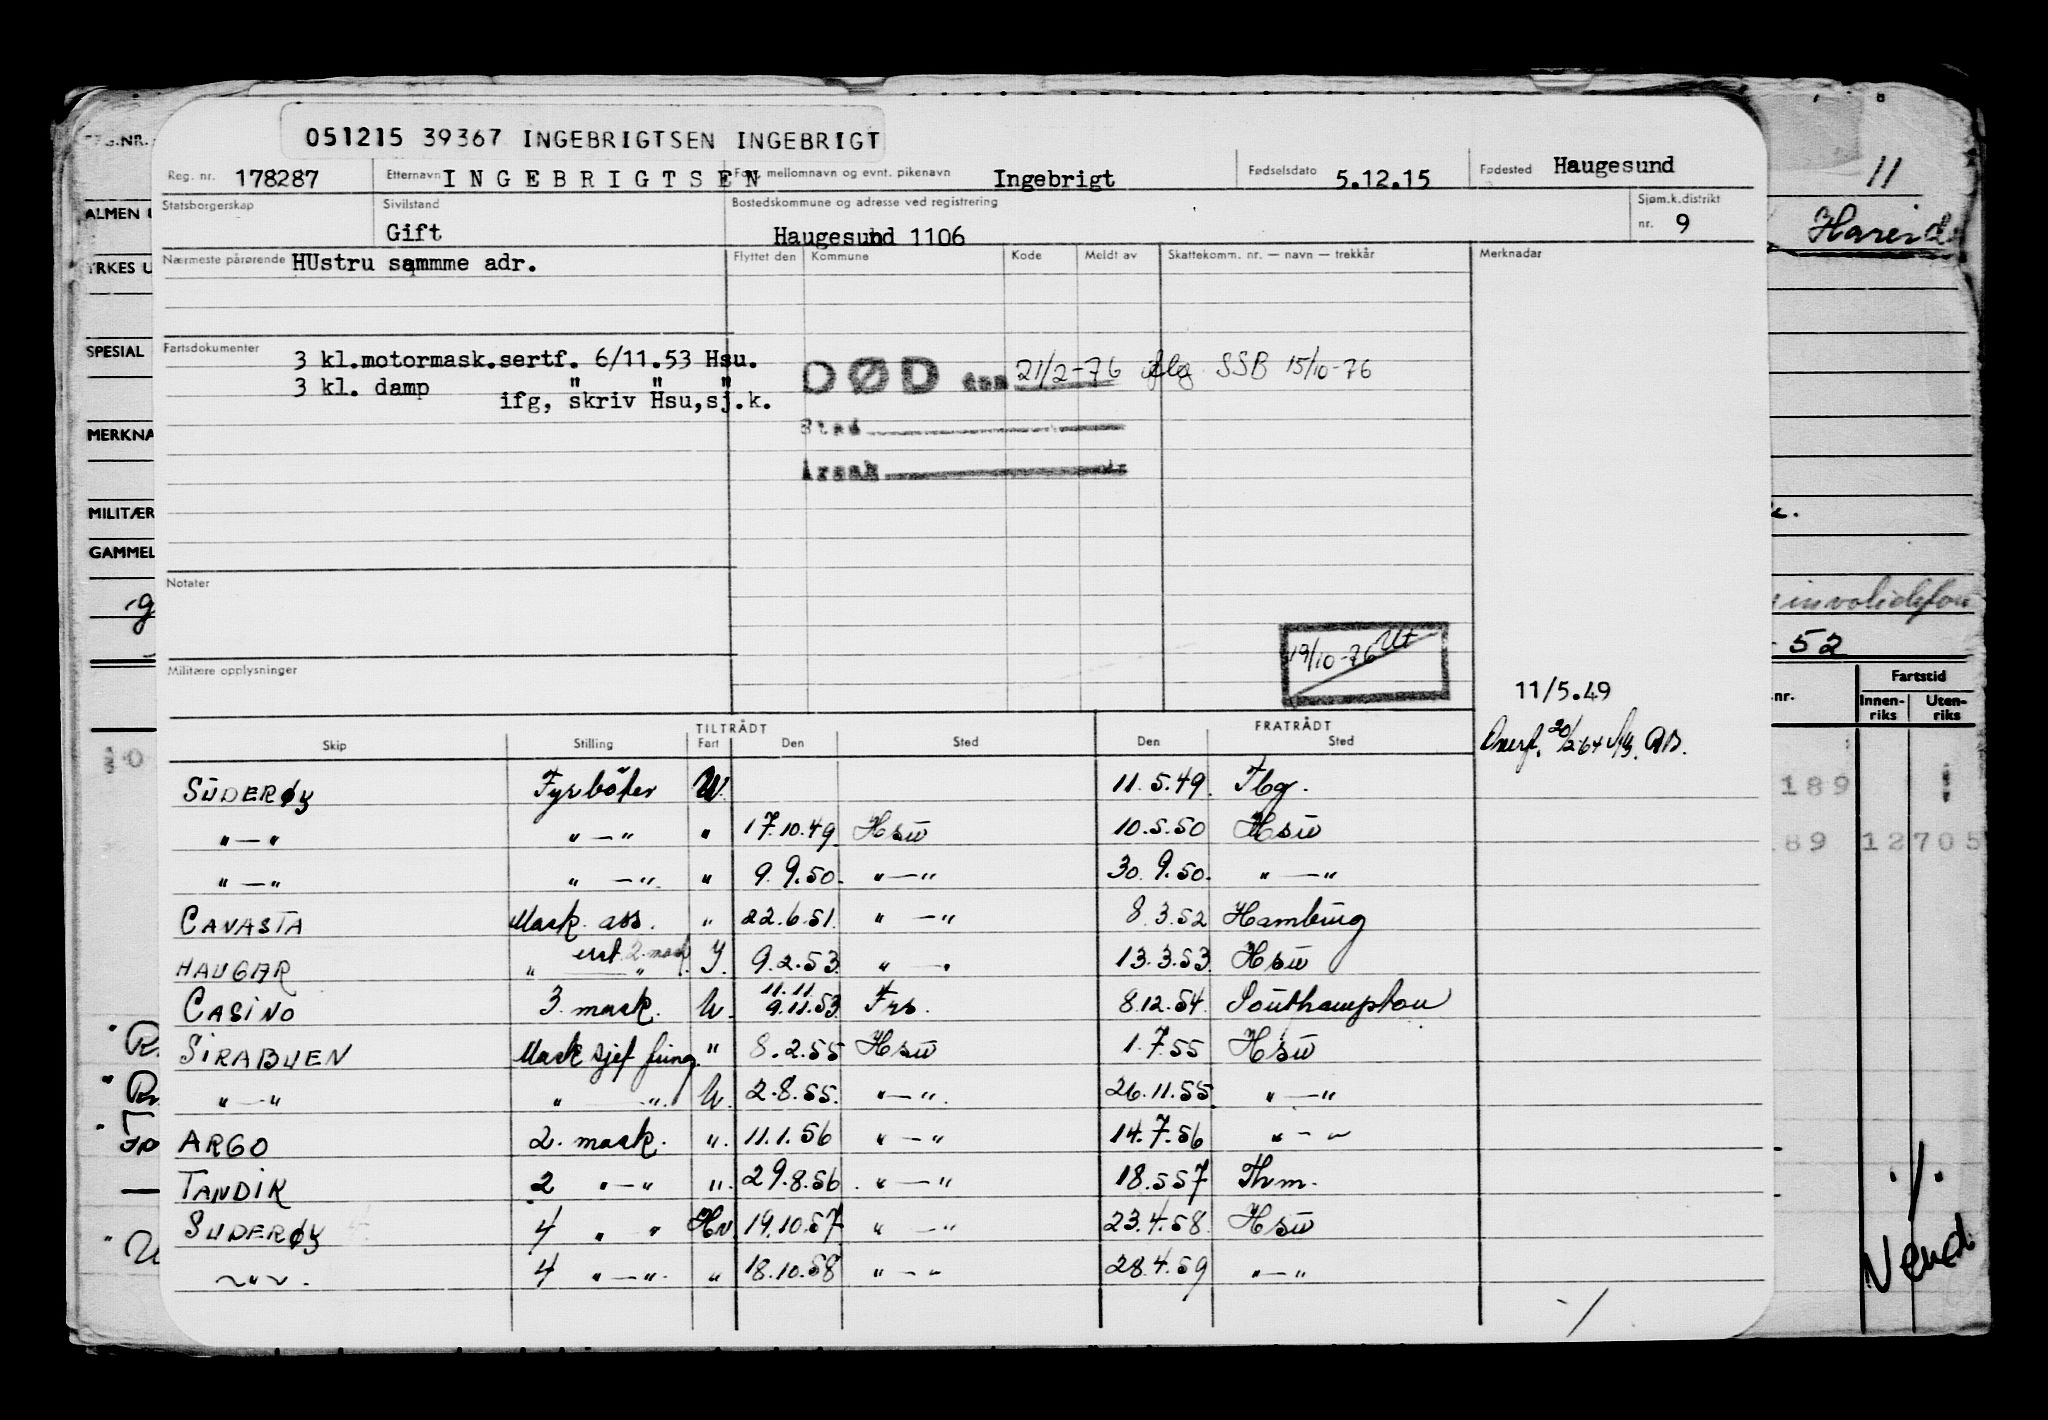 051215 39367 INGEBRIGTSEN INGEBRIGT
Reg. nr. 178287 Etternavn INGEBRIGTSEN For-, mellomnavn og evnt. pikenavn Ingebrigt Fødselsdato 5.12.15 Fødested Haugesund
Statsborgerskap Sivilstand Gift Bostedskommune og adresse ved registrering Haugesund 1106 Sjøm.k.distrikt nr. 9
Nærmeste pårørende HUstru sammme adr. Flyttet den Kommune Kode Meldt av Skattekomm. nr. — navn — trekkår Merknadar
Fartsdokumenter 3 kl.motormask.sertf. 6/11.53 Hsu.
3 kl. damp " " "
ifg, skriv Hsu,sj.k.
DØD den 21/2-76 ifлg SSB 15/10-76
Sted
Årsak
Notater
19/10-76 Ut
Militære opplysninger
11/5.49
20/2 64
TILTRÅDT FRATRÅDT
Skip Stilling Fart Den Sted Den Sted
SÜDERØY Fyrbøter U. 11.5.49. Fbg.
"—" "—" " 17.10.49 Hsu 10.5.50 Hsu
"—" "—" " 9.9.50. "—" 30.9.50. "—"
CANASTA Mask. ass. " 22.6.51. "—" 8.3.52 Hamburg
HAUGAR " erst. 2. mask. I. 9.2.53 "—" 13.3.53 Hsu
CASINO 3. mask. U. 11.11 9.11.53 Frs. 8.12.54. Southampton
SIRABUEN Mask sjef fung. " 8.2.55 Hsu 1.7.55 Hsu
"—" "—" U. 2.8.55. "—" 26.11.55. "—"
ARGO 2. mask. " 11.1.56 "—" 14.7.56 "—"
TANDIK 2 "—" " 29.8.56 "—" 18.5.57 Thm.
SUDERØY 4 " " Hv. 19.10.57. "—" 23.4.58. Hsu
"—" 4 "—" " 18.10.58 "—" 28.4.59 "—"
ALMEN
YRKES U
SPESIAL
MERKNA
MILITÆR
GAMMEL
11
52
Fartstid
nr. Innen-riks Uten-riks
189
89 12705
Vend